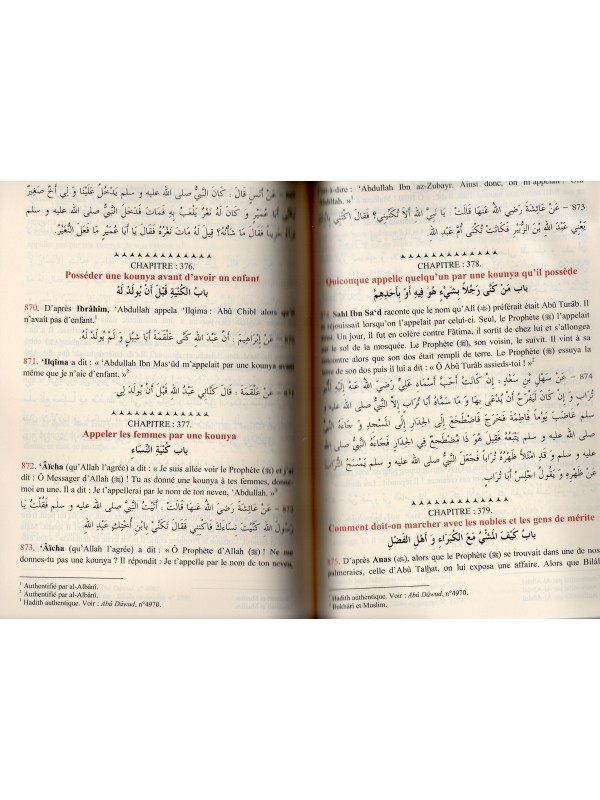 869 – عَنْ أَنَسٍ قَالَ : كَانَ النَّبِيُّ صلى الله عليه و سلم يَدْخُلُ عَلَيْنَا وَ لِي أَخٌ صَغِيرٌ
أَبَا عُمَيْرٍ وَ كَانَ لَهُ نُغَرٌ يَلْعَبُ بِهِ فَمَاتَ فَدَخَلَ النَّبِيُّ صلى الله عليه و سلم
حَزِيناً فَقَالَ مَا شَأْنُهُ؟ قِيلَ لَهُ مَاتَ نُغَرُهُ فَقَالَ يَا أَبَا عُمَيْرٍ مَا فَعَلَ النُّغَيْرُ.
CHAPITRE : 376.
Posséder une kounya avant d'avoir un enfant
بابُ الكُنْيَةِ قَبْلَ أَنْ يُولَدُ لَهُ
870. D'après Ibrâhîm, ‘Abdullah appela ‘Ilqima : Abû Chibl alors
n'avait pas d'enfant.¹
عَنْ إِبْرَاهِيمَ : أَنَّ عَبْدَ اللهِ كَنَّى عَلْقَمَةَ أَبَا شِبْلٍ وَ لَمْ يُولَدْ لَهُ.
871. ‘Ilqima a dit : « ‘Abdullah Ibn Mas‘ûd m'appelait par une kounya
même que je n'aie d'enfant. »²
عَنْ عَلْقَمَةَ : قَالَ كَنَّانِي عَبْدُ اللهِ قَبْلَ أَنْ يُولَدَ لِي.
CHAPITRE : 377.
Appeler les femmes par une kounya
باب كُنْيَةِ النِّسَاءِ
872. ‘Âïcha (qu'Allah l'agrée) a dit : « Je suis allée voir le Prophète (ﷺ) et j'ai
dit : Ô Messager d'Allah (ﷺ) ! Tu as donné une kounya à tes femmes, donne
moi en une. Il a dit : Je t'appellerai par le nom de ton neveu, ‘Abdullah. »
عَنْ عَائِشَةَ رَضِيَ اللهُ عَنْهَا قَالَتْ : أَتَيْتُ النَّبِيَّ صلى الله عليه و سلم فَقُلْتُ يَا
رَسُولَ اللهِ كَنَّيْتَ نِسَاءَكَ فَاكْنِنِي فَقَالَ تَكَنِّي بِابْنِ أُخْتِكِ عَبْدِ اللهِ
873. ‘Âïcha (qu'Allah l'agrée) a dit : « Ô Prophète d'Allah (ﷺ) ! Ne me
donnes-tu pas une kounya ? Il répondit : Je t'appelle par le nom de ton neveu,
¹ Authentifié par al-Albânî.
² Authentifié par al-Albânî.
³ Hadith authentique. Voir : Abû Dâwud, n°4970.
à-dire : ‘Abdullah Ibn az-Zubayr. Ainsi donc, on m'appelait :
Abdillah. »¹
873 – عَنْ عَائِشَةَ رَضِيَ اللهُ عَنْهَا قَالَتْ : يَا نَبِيَّ اللهِ أَلاَ تُكَنِّينِي؟ فَقَالَ اكْتَنِي بِابْنِكِ
يَعْنِي عَبْدَ اللهِ بْنَ الزُّبَيْرِ فَكَانَتْ تُكَنَّى أُمَّ عَبْدِ اللهِ.
CHAPITRE : 378.
Quiconque appelle quelqu'un par une kounya qu'il possède
باب مَنْ كَنَّى رَجُلاً بِشَيْءٍ هُوَ فِيهِ أَوْ بِأَحَدِهِمْ
Sahl Ibn Sa‘d raconte que le nom qu'Alî préférait était Abû Turâb. Il
réjouissait lorsqu'on l'appelait par celui-ci. Seul, le Prophète (ﷺ) l'appelait
ainsi. Un jour, il fut en colère contre Fâtima, il sortit de chez lui et s'allongea
sur le sol de la mosquée. Le Prophète (ﷺ), son voisin, le suivit. Il vint à sa
rencontre alors que son dos était rempli de terre. Le Prophète (ﷺ) essuya la
terre de son dos puis il lui a dit : « Ô Abû Turâb assieds-toi ! »
874 – عَنْ سَهْلِ بْنِ سَعْدٍ: إِنْ كَانَتْ أَحَبَّ أَسْمَاءِ عَلِيٍّ رَضِيَ اللهُ عَنْهُ إِلَيْهِ أَبُو
تُرَابٍ وَ إِنْ كَانَ لَيَفْرَحُ أَنْ يُدْعَى بِهَا وَ مَا سَمَّاهُ أَبَا تُرَابٍ إِلاَّ النَّبِيُّ صلى الله عليه و
سلم غَاضَبَ يَوْماً فَاطِمَةَ فَخَرَجَ فَاضْطَجَعَ إِلَى الْجِدَارِ إِلَى الْمَسْجِدِ وَ جَاءَهُ
صلى الله عليه و سلم يَتْبَعُهُ فَقِيلَ هُوَ ذَا مُضْطَجِعٌ فِي الْجِدَارِ فَجَاءَهُ النَّبِيُّ صلى الله
عليه و سلم وَ قَدِ امْتَلأَ ظَهْرُهُ تُرَاباً فَجَعَلَ النَّبِيُّ صلى الله عليه و سلم يَمْسَحُ التُّرَابَ
عَنْ ظَهْرِهِ وَ يَقُولُ اجْلِسْ أَبَا تُرَابٍ.
CHAPITRE : 379.
Comment doit-on marcher avec les nobles et les gens de mérite
بابُ كَيْفَ الْمَشْيُ مَعَ الْكُبَرَاءِ وَ أَهْلِ الْفَضْلِ
875. D'après Anas, alors que le Prophète (ﷺ) se trouvait dans une de nos
palmeraies, celle d'Abû Talhat, on lui exposa une affaire. Alors que Bilâl
¹ Hadith authentique. Voir : Abû Dâwud, n°4970.
² Bukhârî et Muslim.